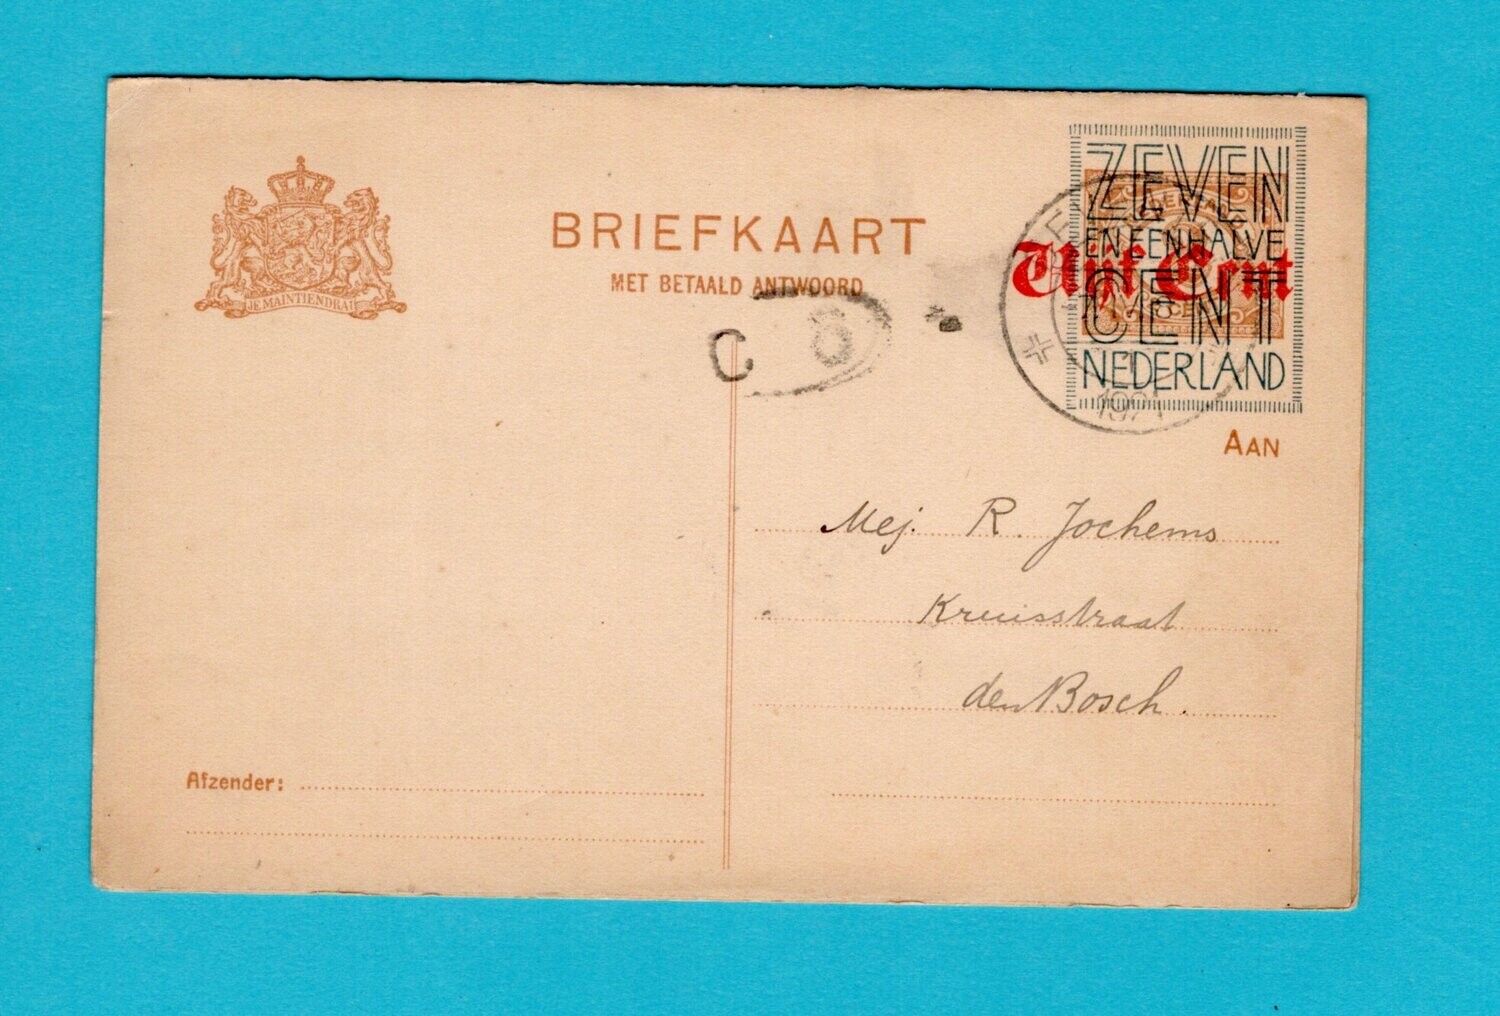 JE MAINTIENDRAI
BRIEFKAART
MET BETAALD ANTWOORD
ZEVEN
EN EEN HALVE
Vijf Cent
CENT
NEDERLAND
C
AAN
Mej. R. Jochems
Kruisstraat
den Bosch.
Afzender: